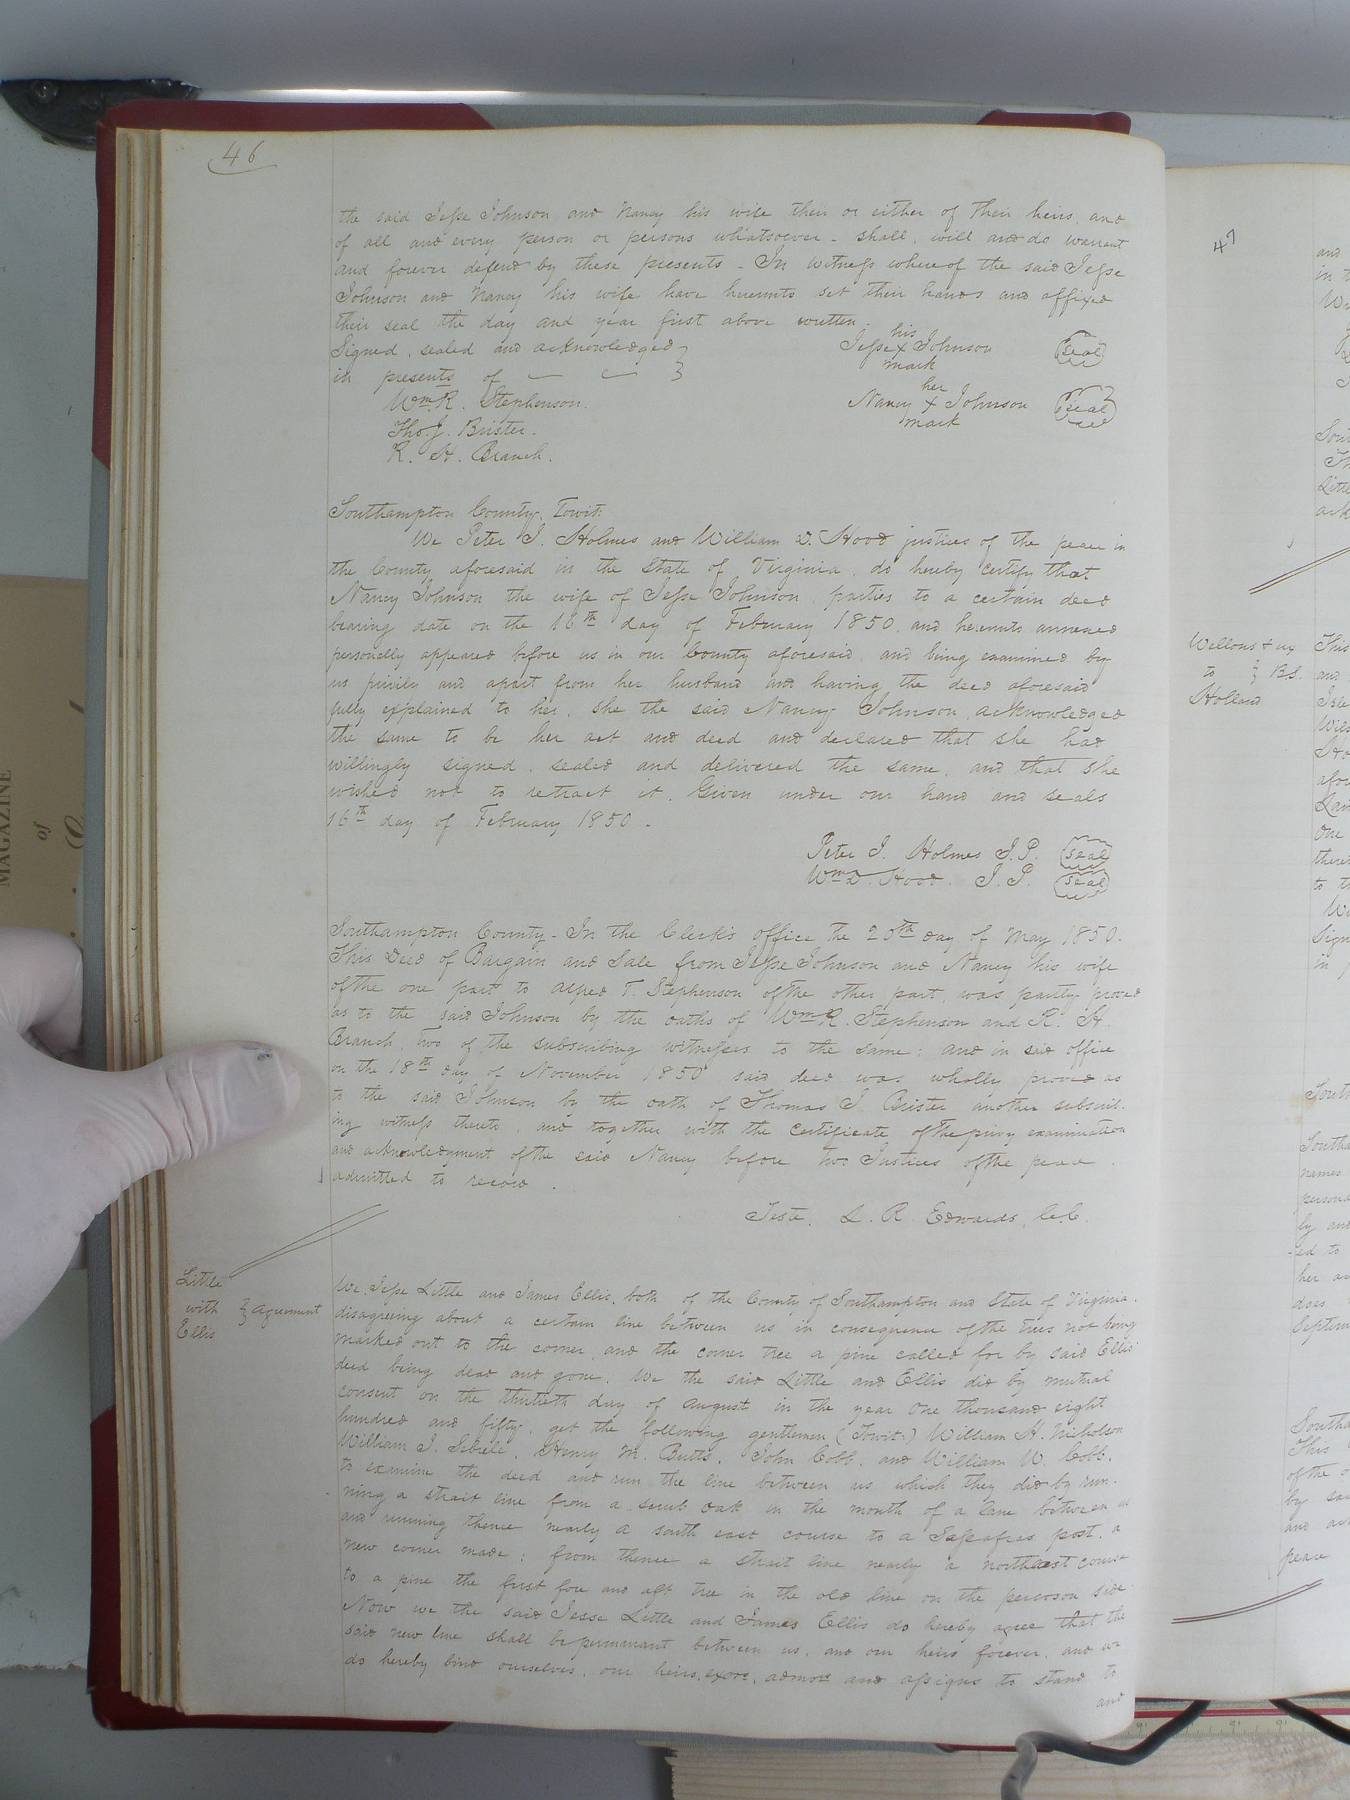 46
the said Jesse Johnson and Nancy his wife their or either of their heirs and
of all and every person or persons whatsoever - shall, will and do warrant
and forever defend by these presents - In witness whereof the said Jesse
Johnson and Nancy his wife have hereunto set their hands and affixed
their seal the day and year first above written.
Signed, sealed and acknowledged
in presents of
his
Jesse x Johnson seal
mark
her
Nancy x Johnson seal
mark
Wm. R. Stephenson.
Tho. J. Brister.
R. H. Branch.
Southampton County, Towit:
We Peter J. Holmes and William D. Hood justices of the peace in
the County aforesaid in the State of Virginia, do hereby certify that
Nancy Johnson the wife of Jesse Johnson, parties to a certain deed
bearing date on the 16th day of February 1850, and hereunto annexed
personally appeared before us in our County aforesaid, and being examined by
us privily and apart from her husband and having the deed aforesaid
fully explained to her, she the said Nancy Johnson, acknowledged
the same to be her act and deed and declared that she had
willingly signed, sealed and delivered the same, and that she
wished not to retract it. Given under our hand and seals
16th day of February 1850.
Peter J. Holmes J.P. seal
Wm D. Hood. J.P. seal
Southampton County - In the Clerk's office the 20th day of May 1850.
This Deed of Bargain and Sale from Jesse Johnson and Nancy his wife
of the one part to Alfred T. Stephenson of the other part, was partly proved
as to the said Johnson by the oaths of Wm R. Stephenson and R. H.
Branch, two of the subscribing witnesses to the same; and in said office
on the 18th day of November 1850 said deed was wholly proved as
to the said Johnson by the oath of Thomas J. Brister another subscrib-
ing witness thereto, and together with the Certificate of the privy examination
and acknowledgment of the said Nancy before two Justices of the peace
admitted to record.
Teste, L. R. Edwards, C.C.
Little
with } Agreement
Ellis
We Jesse Little and James Ellis, both of the County of Southampton and State of Virginia.
disagreeing about a certain line between us in consequence of the trees not being
marked out to the corner, and the corner tree a pine called for by said Ellis'
deed being dead and gone. We the said Little and Ellis did by mutual
consent on the thirtieth day of August in the year One thousand eight
hundred and fifty, get the following gentlemen (Towit:) William H. Nicholson
William J. Sebrell, Henry M. Butts, John Cobb, and William W. Cobb.
to examine the deed and run the line between us which they did by run-
ning a strait line from a scrub oak in the mouth of a lane between us
and running thence nearly a south east course to a Sassafras post, a
new corner made; from thence a strait line nearly a northeast course
to a pine the first fore and aft tree in the old line on the side
Now we the said Jesse Little and James Ellis do hereby agree that the
said new line shall be permanant between us, and our heirs forever, and we
do hereby bind ourselves, our heirs, exors, admors and assigns to stand to
and
47
Wellons & ux
to } B.S.
Holland